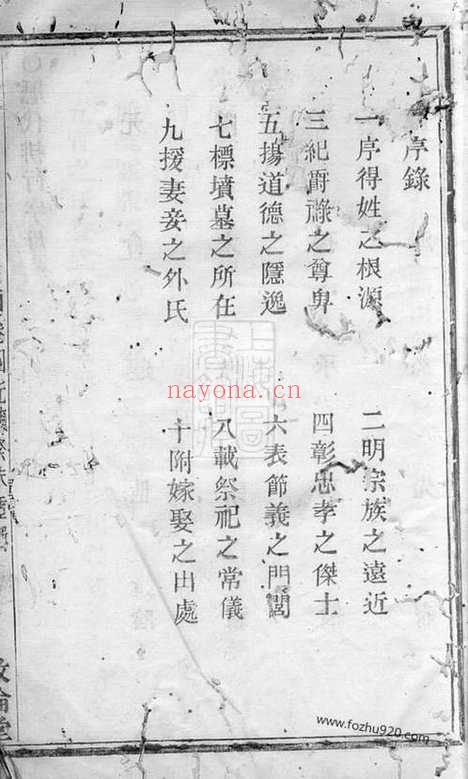 序錄
一序得姓之根源
二明宗族之遠近
三紀爵祿之尊卑
四彰忠孝之傑士
五揚道德之隱逸
六表節義之門閭
七標墳墓之所在
八載祭祀之常儀
九援妻妾之外氏
十附嫁娶之出處
敦倫堂
nayona.cn
www.fozhu920.com